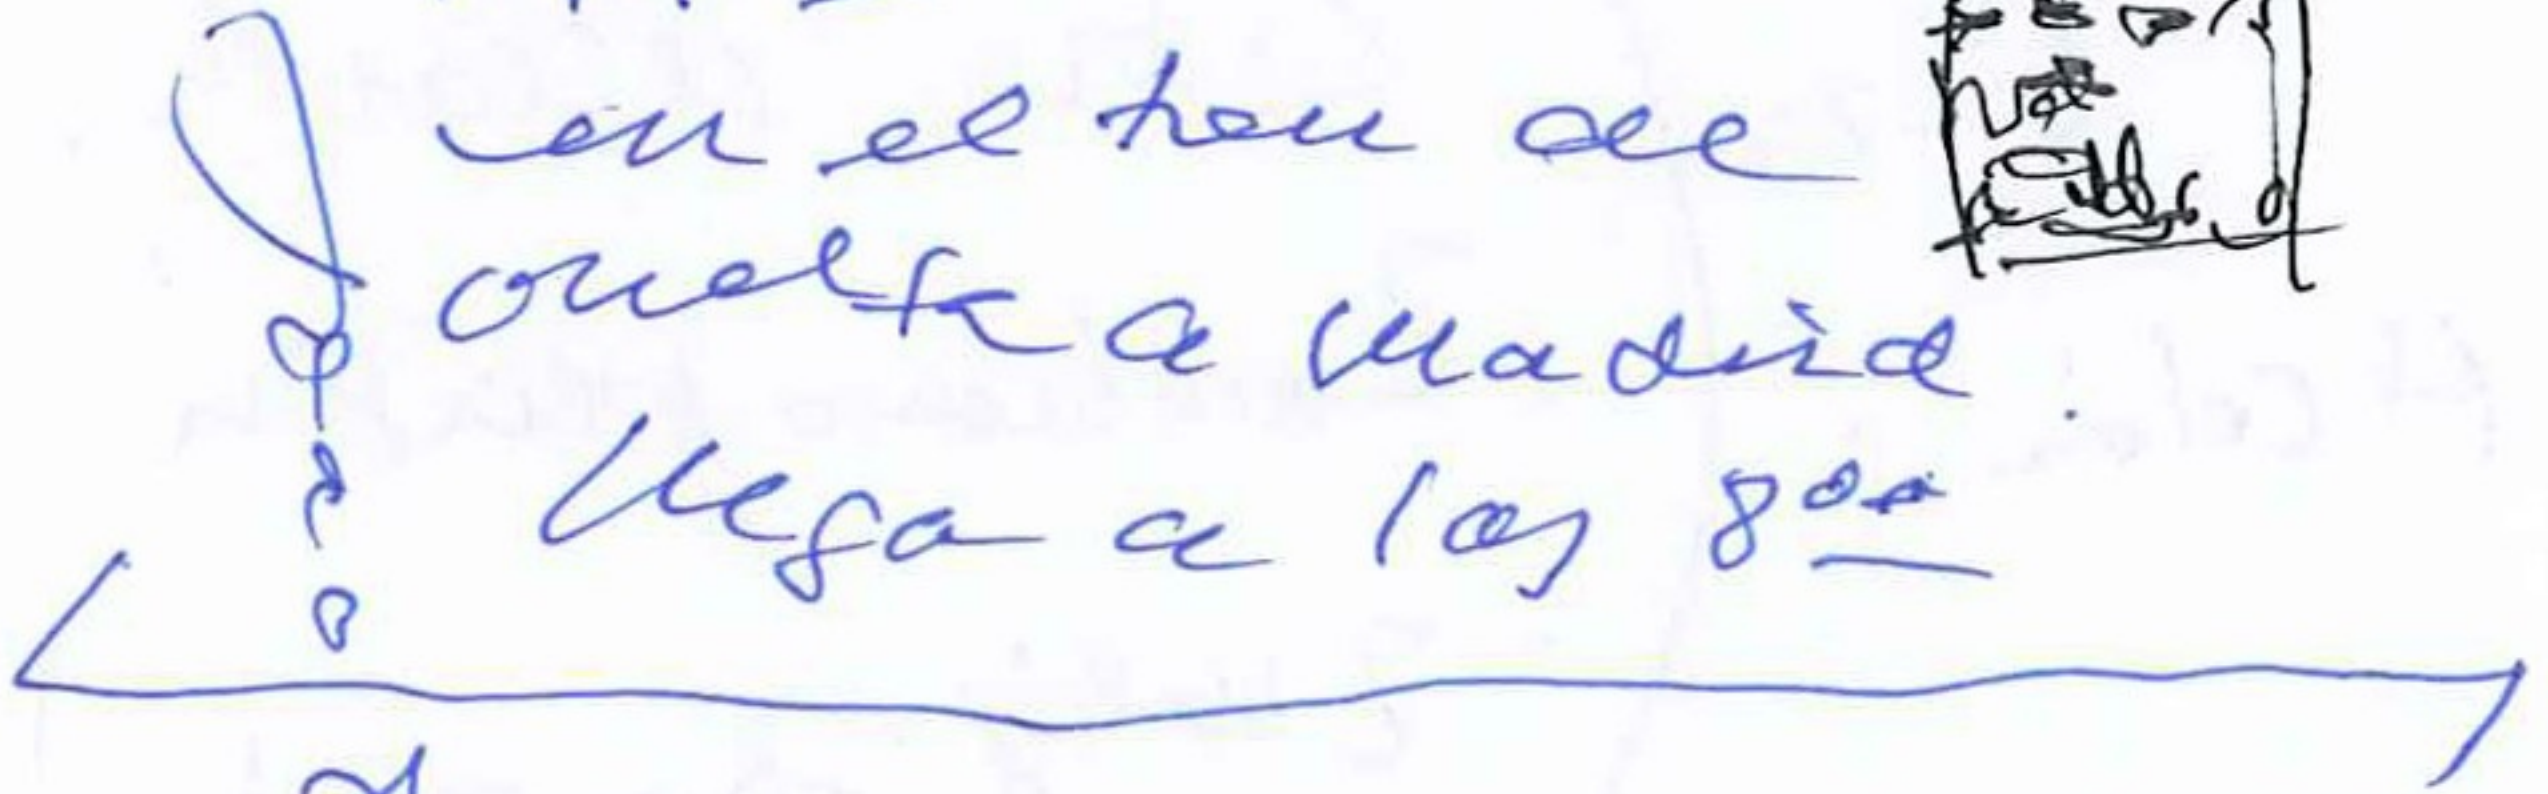 en el tren de
vuelta a Madrid.
llega a las 8⁰⁰